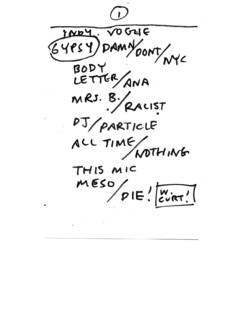 1
INDY. VOGUE
GYPSY DAMN/DONT/NYC
BODY
LETTER/ANA
MRS. B./RALIST
DJ/PARTICLE
ALL TIME/NOTHING
THIS MIC
MESO/DIE! W. CURT!